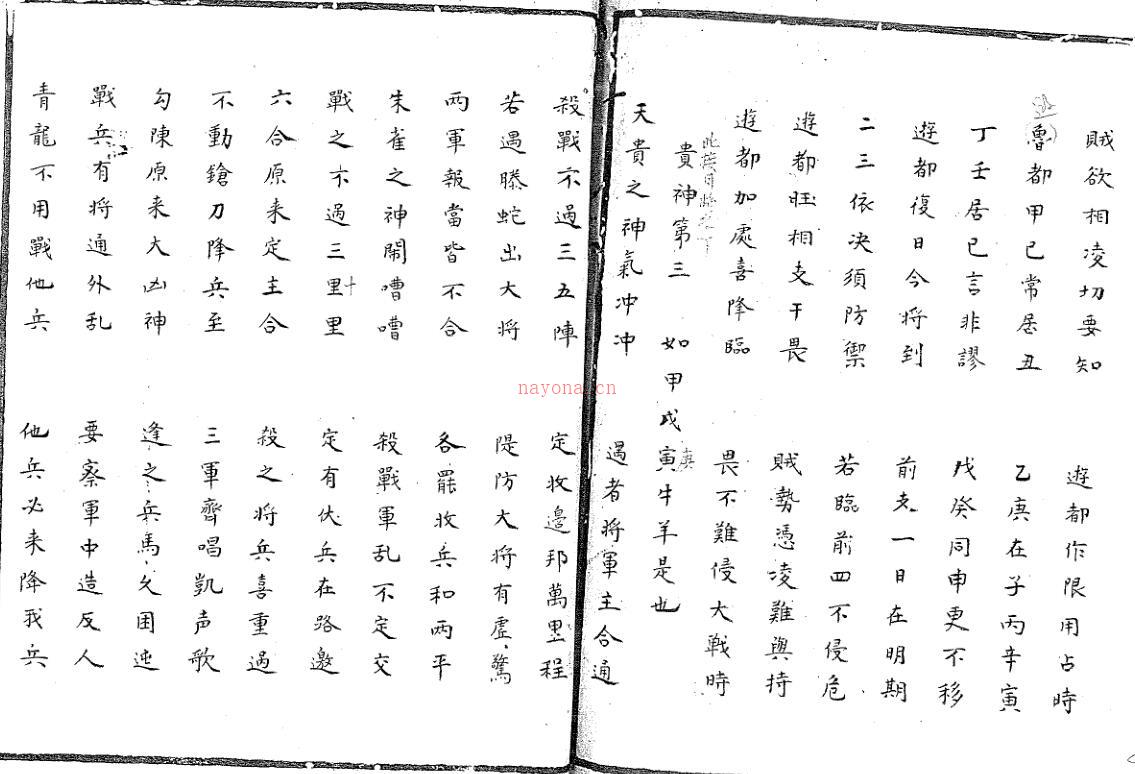 賊欲相凌切要知 遊都作限用占時
魯都甲已常居丑 乙庚在子丙辛寅
丁壬居巳言非謬 戊癸同申更不移
遊都復日今將到 前支一日在明期
二三依决須防禦 若臨前四不侵危
遊都旺相支干畏 賊勢憑凌難與持
遊都加處喜降臨 畏不難侵大戰時
貴神第三 如甲戊庚寅牛羊是也
天貴之神氣冲冲 遇者將軍主合通
殺戰不過三五陣 定收邉邦萬里程
若遇螣蛇出大將 隄防大將有虛驚
兩軍報當皆不合 各罷收兵和兩平
朱雀之神鬧嘈嘈 殺戰軍乱不定交
戰之不過三里十里 定有伏兵在路邀
六合原来定主合 殺之將兵喜重過
不動鎗刀降兵至 三軍齊唱凱声歌
勾陳原来大凶神 逢之兵馬久困迍
戰兵有將通外乱 要察軍中造反人
青龍不用戰他兵 他兵必来降我兵
nayona.cn